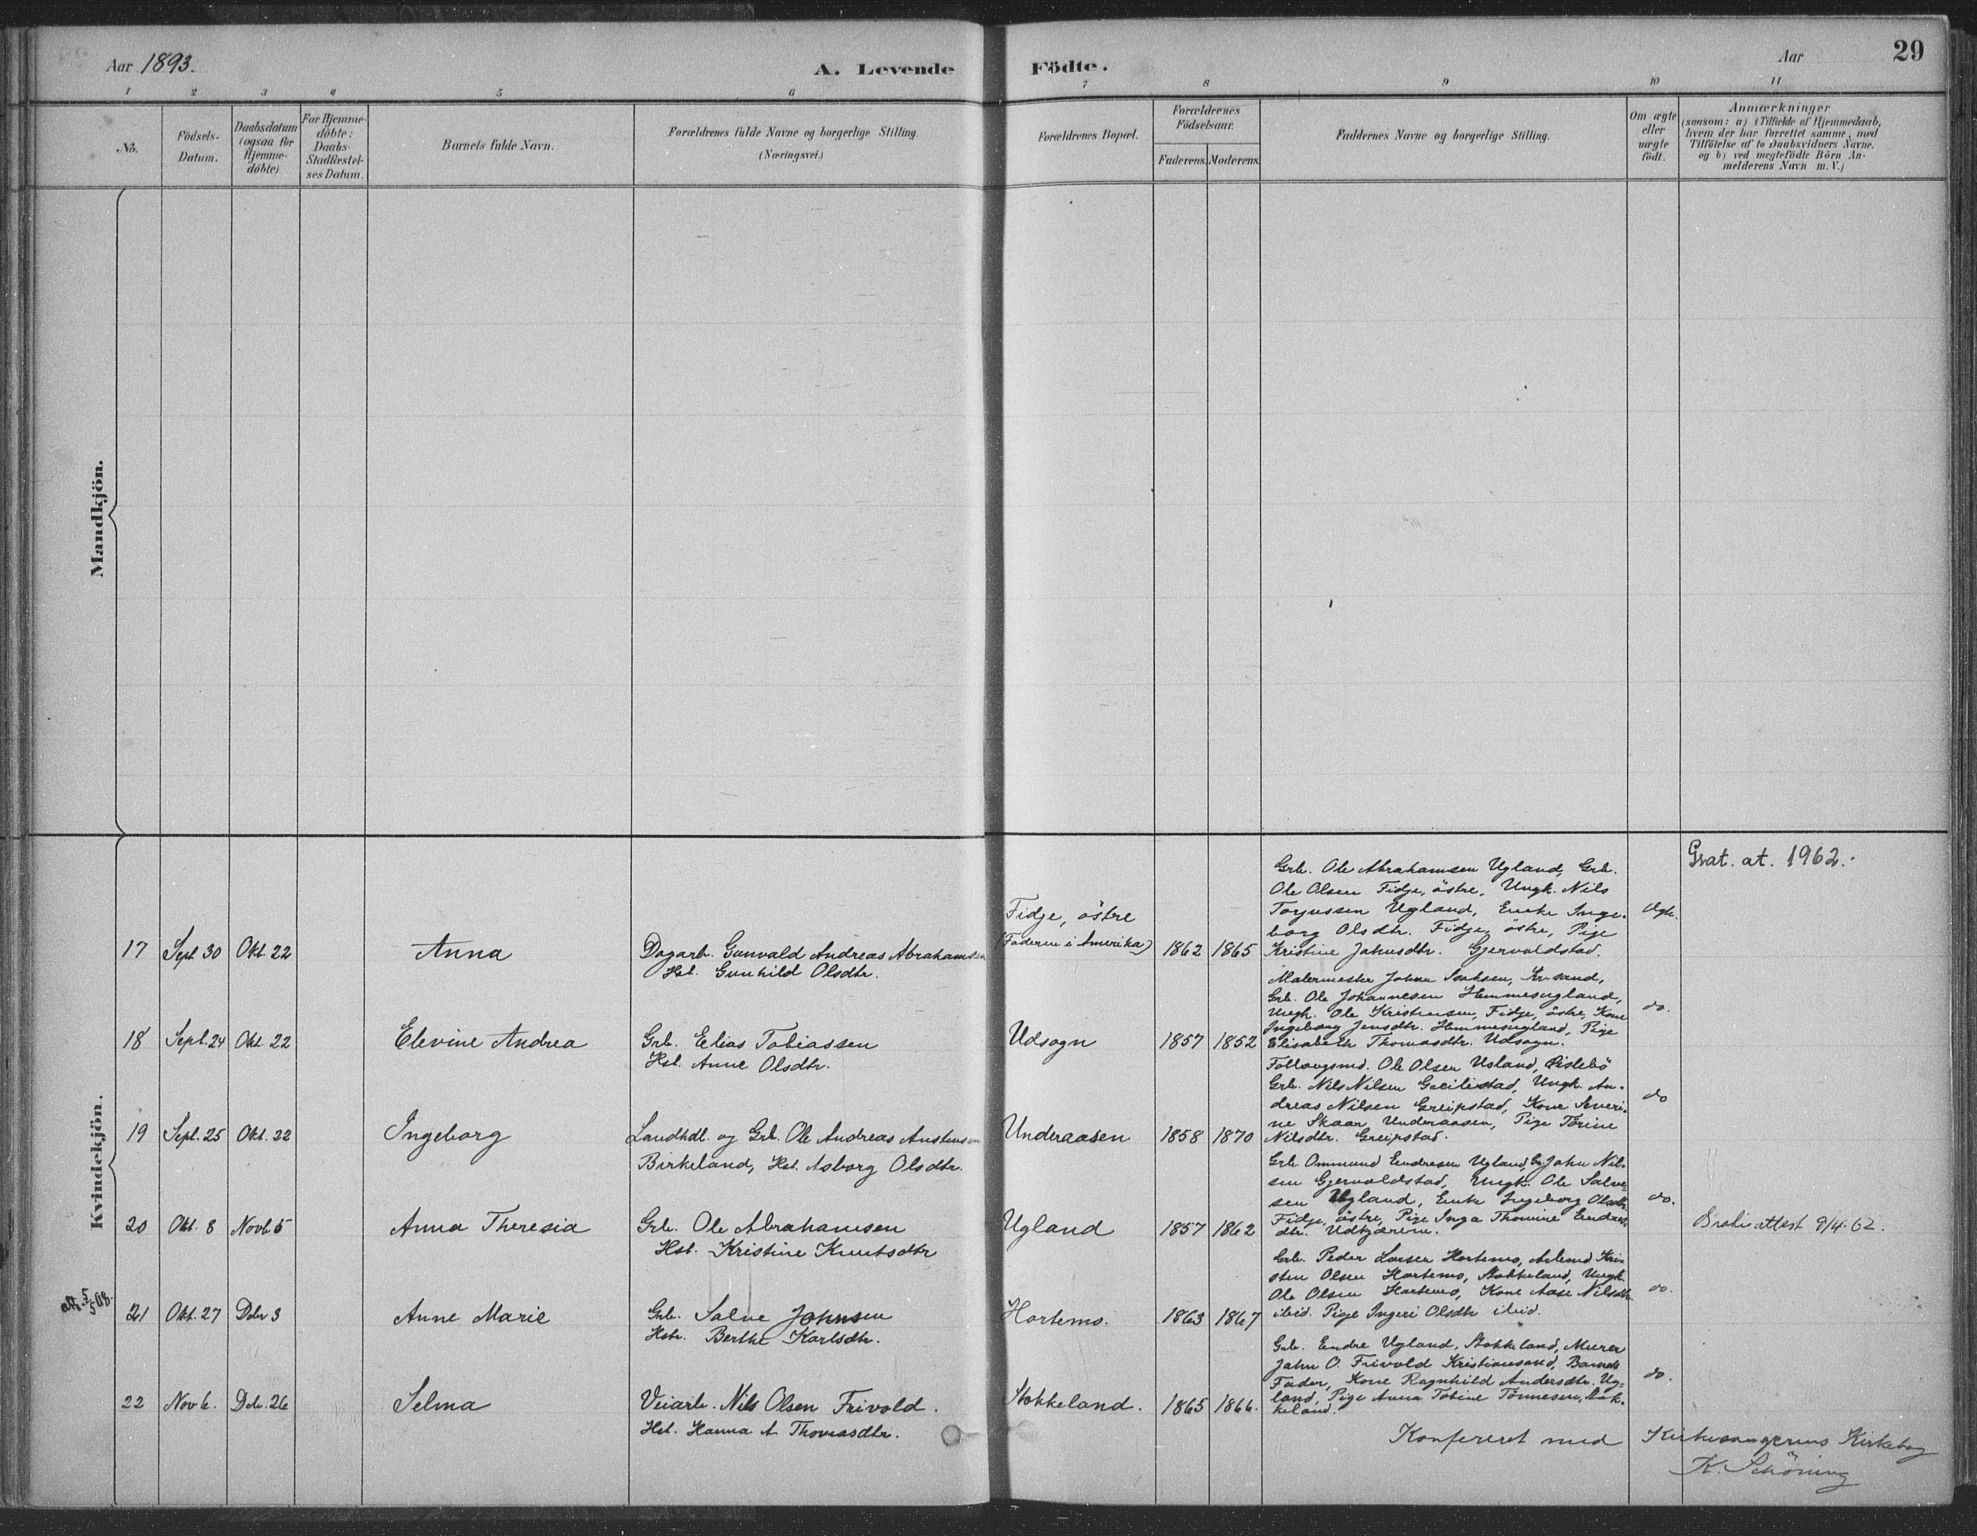 Aar 1893.
A. Levende Födte.
Aar
29
1 2 3 4 5 6 7 8 9 10 11
No.
Födsels-
Datum.
Daabsdatum
(ogsaa for
Hjemme-
döbte)
For Hjemme-
döbte:
Daabs-
Stadfæstel-
ses Datum.
Barnets fulde Navn.
Forældrenes fulde Navne og borgerlige Stilling.
(Næringsvei.)
Forældrenes Bopæl.
Forældrenes
Födselsaar.
Faderens. Moderens.
Faddernes Navne og borgerlige Stilling.
Om ægte
eller
uægte
födt.
Anmærkninger
(saasom: a) i Tilfælde af Hjemmedaab,
hvem der har forrettet samme, med
Tilföielse af to Daabsvidners Navne,
og b) ved uægtefödte Börn An-
melderens Navn m. V.)
Mandkjön.
Kvindekjön.
17 Sept 30 Okt 22 Anna
Dagarb. Gunvald Andreas Abrahamsen
Hst. Gunhild Olsdtr.
Fidje, östre
(Faderen i Amerika)
1862 1865
Grb. Ole Abrahamsen Ugland, Grb.
Ole Olsen Fidje, östre, Ungk. Nils
Torjussen Ugland, Enke Inge-
borg Olsdtr. Fidje, östre, Pige
Kristine Jahnsdtr. Gjervoldstad.
Ægte.
Grat. at. 1962.
18 Sept. 24 Okt. 22 Elevine Andrea
Grb. Elias Tobiassen
Hst. Anne Olsdtr.
Udsogn
1857 1852
Malermester Johan Isaksen, Krsand,
Grb. Ole Johannesen Hemmesugland,
Ungk. Ole Kristensen, Fidje, östre, Kone
Ingeborg Jensdtr. Hemmesugland, Pige
Elisabeth Thomasdtr. Udsogn.
do.
19 Sept. 25 Okt. 22 Ingeborg
Landhdl. og Grb. Ole Andreas Austensen
Birkeland, Hst. Asborg Olsdtr.
Underaasen
1858 1870
Ole Olsen Usland,
Grb. Nils Nilsen Greibstad, Ungk. An-
dreas Nilsen Greipstad, Kone Severi-
ne Skaar Underaasen, Pige Törine
Nilsdtr. Greipstad.
do
20 Okt. 8 Novb 5 Anna Theresia
Grb. Ole Abrahamsen
Hst. Kristine Knutsdtr
Ugland
1857 1862
Grb Ommund Endresen Ugland, Gr. John Nil-
sen Gjervoldstad, Ungk. Ole Salve-
sen Ugland, Enke Ingeborg Olsdtr.
Fidje, östre, Pige Inga Thomine Endres-
dtr. Udtjærnn.
do.
attest 9/4-62.
att. 5/5 08.
21 Okt. 27 Dcbr 3 Anne Marie
Grb. Salve Johnsen
Hst. Berthe Karlsdtr.
Hortemo.
1863 1867
Grb. Peder Larsen Hortemo, Arbmd Kri-
sten Olsen Hortemo, Stokkeland, Ungk.
Ole Olsen Hortemo, Kone Aase Nilsdtr.
ibid. Pige Ingeri Olsdtr ibid.
do.
22 Nov 6. Dcb. 26 Selma
Veiarb. Nils Olsen Frivold.
Hst. Hanna A Thomasdtr.
Stokkeland.
1865 1866.
Grb. Endre Ugland, Stokkeland, Murer
Jahn O. Frivold Kristiansand, Barnets
Fader, Kone Ragnhild Andersdtr. Ug-
land, Pige Anna Tobine Tönnesen, Stok-
keland.
do.
Konfereret med Kirkesangerens Kirkebog
K. Schöning